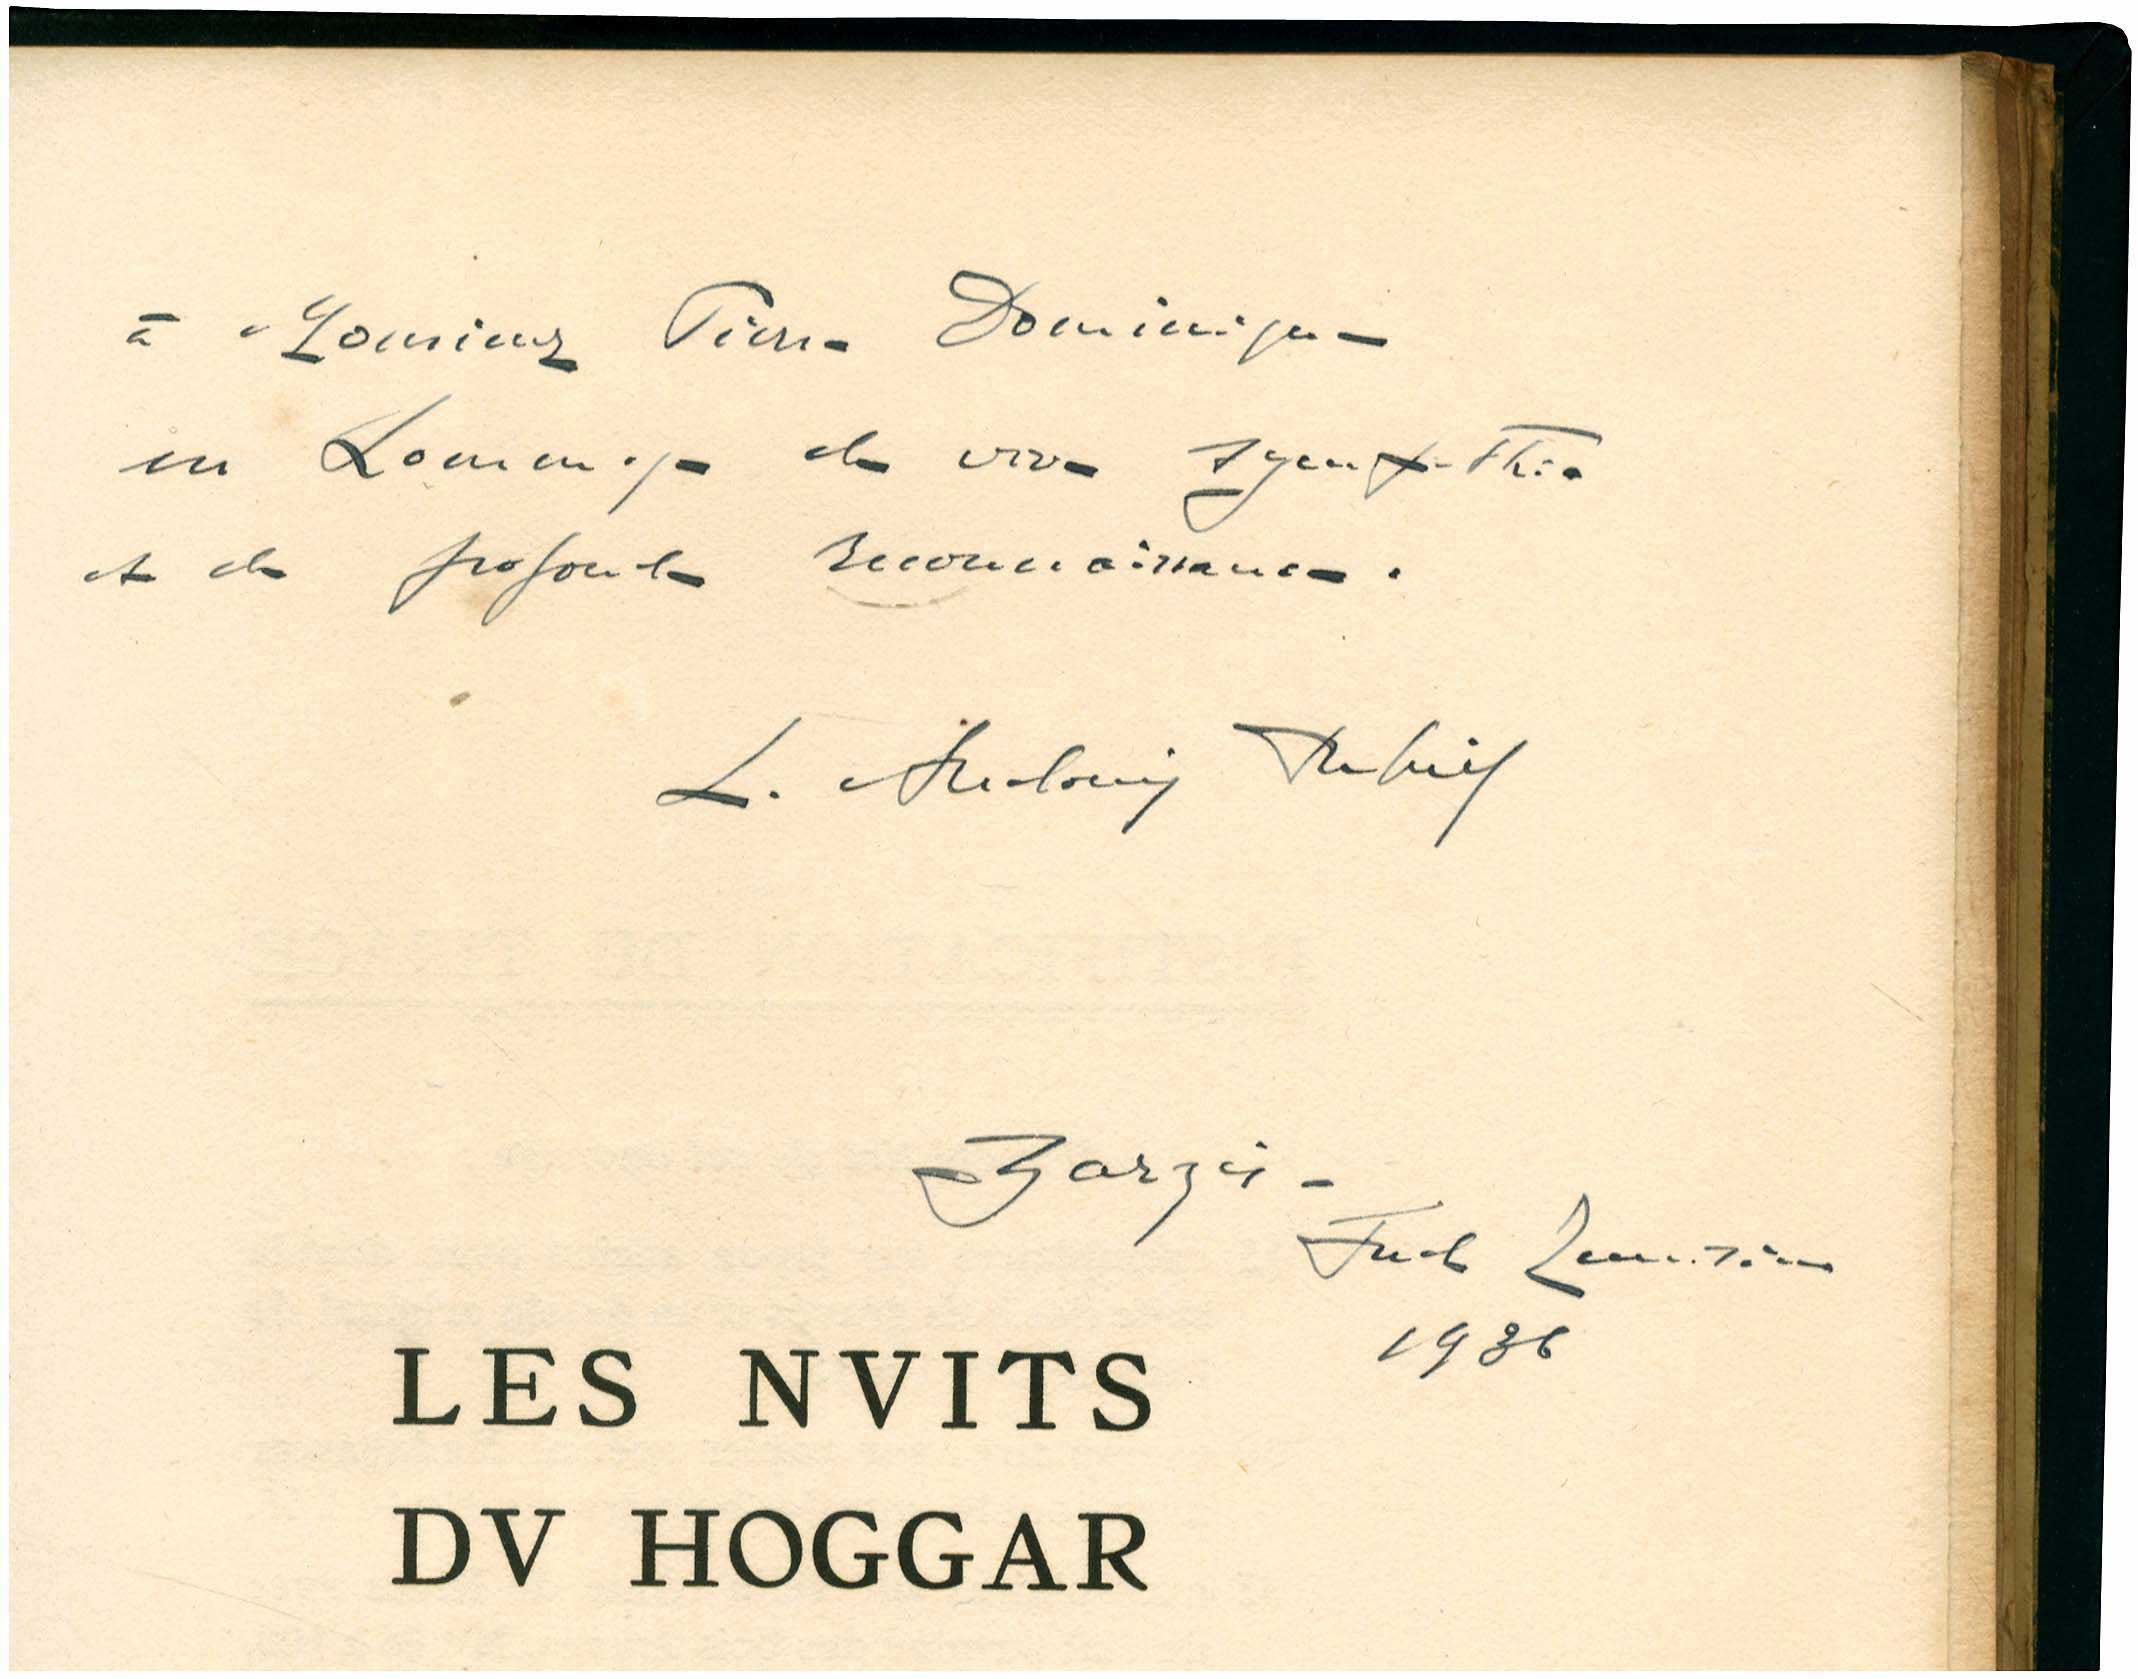 à Monsieur Pierre Dominique
en hommage de vive sympathie
et de profonde reconnaissance.
L. Audouin Dubreuil
Zarzis -
Sud Tunisien
1936
LES NVITS
DV HOGGAR